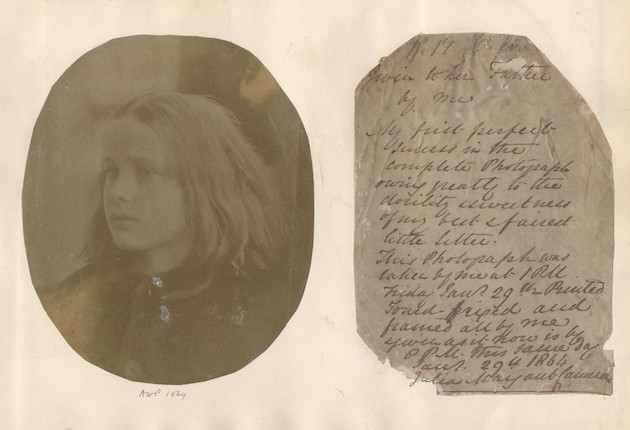 No 19
Given to her Father
by me
My first perfect
success in the
complete Photograph
owing greatly to the
docility & sweetness
of my best & fairest
little sitter.
This Photograph was
taken by me at 1 P.M.
Friday Jan. 29th Printed
Toned - fixed and
framed all by me
given as it now is by
8 P.M. this same day
Jan. 29th 1864
Julia Margaret Cameron